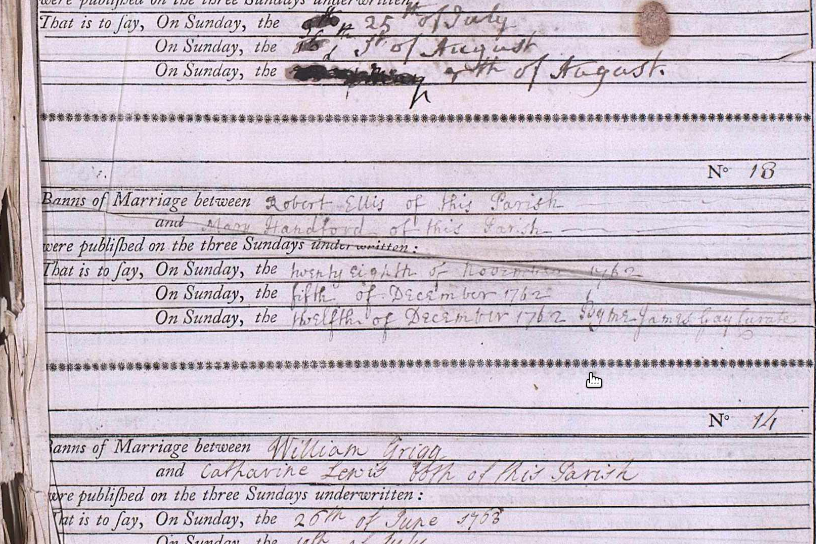 were published on the three Sundays underwritten:
That is to say, On Sunday, the 25th of July
On Sunday, the 1st of August
On Sunday, the 8th of August.
No 13
Banns of Marriage between Robert Ellis of this Parish
and Mary Handford of this Parish
were published on the three Sundays underwritten:
That is to say, On Sunday, the twenty eighth of November 1762
On Sunday, the fifth of December 1762
On Sunday, the twelfth of December 1762 By me James Gay Curate
No 14
Banns of Marriage between William Grigg
and Catharine Lewis both of this Parish
were published on the three Sundays underwritten:
That is to say, On Sunday, the 26th of June 1763
On Sunday, the of July